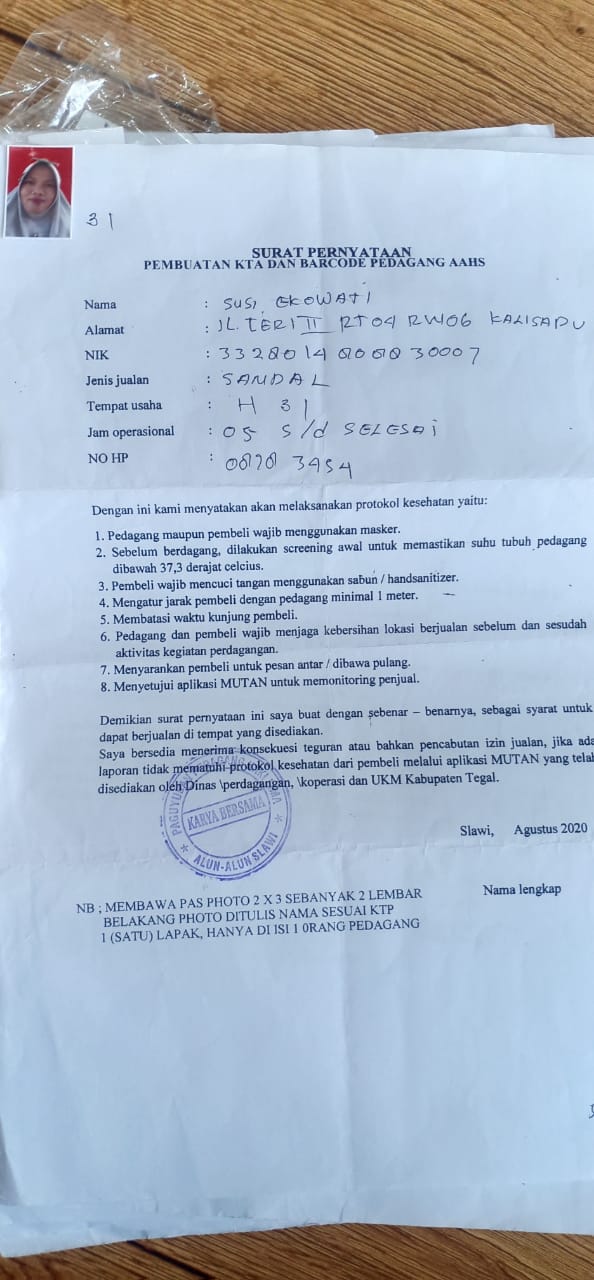 31
SURAT PERNYATAAN
PEMBUATAN KTA DAN BARCODE PEDAGANG AAHS
Nama : SUSI EKOWATI
Alamat : JL. TERI III RT04 RW06 KALISAPU
NIK : 3328014606830007
Jenis jualan : SANDAL
Tempat usaha : H 31
Jam operasional : 05 S/d SELESAI
NO HP : 08783454
Dengan ini kami menyatakan akan melaksanakan protokol kesehatan yaitu:
1. Pedagang maupun pembeli wajib menggunakan masker.
2. Sebelum berdagang, dilakukan screening awal untuk memastikan suhu tubuh pedagang
dibawah 37,3 derajat celcius.
3. Pembeli wajib mencuci tangan menggunakan sabun / handsanitizer.
4. Mengatur jarak pembeli dengan pedagang minimal 1 meter.
5. Membatasi waktu kunjung pembeli.
6. Pedagang dan pembeli wajib menjaga kebersihan lokasi berjualan sebelum dan sesudah
aktivitas kegiatan perdagangan.
7. Menyarankan pembeli untuk pesan antar / dibawa pulang.
8. Menyetujui aplikasi MUTAN untuk memonitoring penjual.
Demikian surat pernyataan ini saya buat dengan sebenar – benarnya, sebagai syarat untuk
dapat berjualan di tempat yang disediakan.
Saya bersedia menerima konsekuesi teguran atau bahkan pencabutan izin jualan, jika ada
laporan tidak mematuhi protokol kesehatan dari pembeli melalui aplikasi MUTAN yang telah
disediakan oleh Dinas \perdagangan, \koperasi dan UKM Kabupaten Tegal.
KARYA BERSAMA
ALUN-ALUN SLAWI
Slawi, Agustus 2020
Nama lengkap
NB ; MEMBAWA PAS PHOTO 2 X 3 SEBANYAK 2 LEMBAR
BELAKANG PHOTO DITULIS NAMA SESUAI KTP
1 (SATU) LAPAK, HANYA DI ISI 1 0RANG PEDAGANG